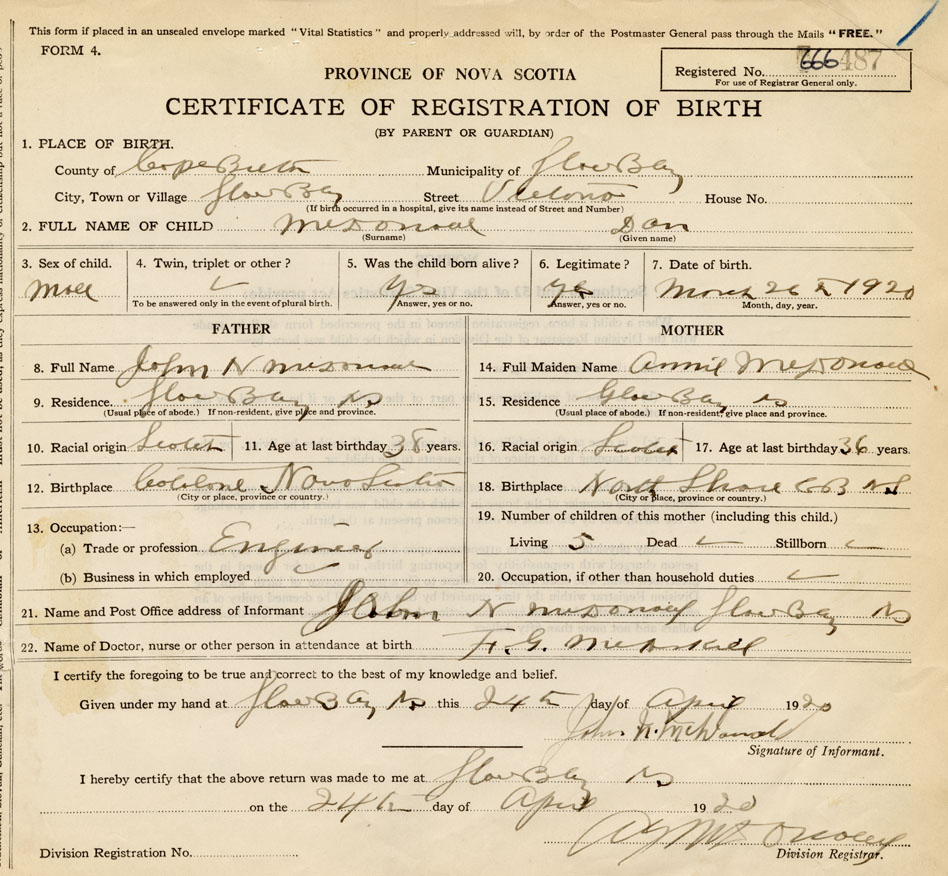 This form if placed in an unsealed envelope marked "Vital Statistics" and properly addressed will, by order of the Postmaster General pass through the Mails "FREE."
FORM 4.
Registered No. 666 487
For use of Registrar General only.
PROVINCE OF NOVA SCOTIA
CERTIFICATE OF REGISTRATION OF BIRTH
(BY PARENT OR GUARDIAN)
1. PLACE OF BIRTH.
County of Cape Breton Municipality of Glace Bay
City, Town or Village Glace Bay Street Victoria House No.
(If birth occurred in a hospital, give its name instead of Street and Number)
2. FULL NAME OF CHILD McDonald Dan
(Surname) (Given name)
3. Sex of child. 4. Twin, triplet or other? 5. Was the child born alive? 6. Legitimate? 7. Date of birth.
Male Yes Yes March 26 1920
To be answered only in the event of plural birth. Answer, yes or no. Answer, yes or no. Month, day, year.
FATHER
8. Full Name John N McDonald
9. Residence. Glace Bay NS
(Usual place of abode.) If non-resident, give place and province.
10. Racial origin Scotch 11. Age at last birthday 38 years.
12. Birthplace Catalone Nova Scotia
(City or place, province or country.)
13. Occupation:—
(a) Trade or profession Engineer
(b) Business in which employed
MOTHER
14. Full Maiden Name Annie McDonald
15. Residence Glace Bay NS
(Usual place of abode.) If non-resident, give place and province.
16. Racial origin Scotch 17. Age at last birthday 36 years.
18. Birthplace North Shore CB NS
(City or place, province or country.)
19. Number of children of this mother (including this child.)
Living 5 Dead Stillborn
20. Occupation, if other than household duties
21. Name and Post Office address of Informant John N McDonald Glace Bay NS
22. Name of Doctor, nurse or other person in attendance at birth F. G.
I certify the foregoing to be true and correct to the best of my knowledge and belief.
Given under my hand at Glace Bay NS this 24th day of April 1920
John N. McDonald
Signature of Informant.
I hereby certify that the above return was made to me at Glace Bay NS
on the 24th day of April 1920
Division Registration No.
Division Registrar.